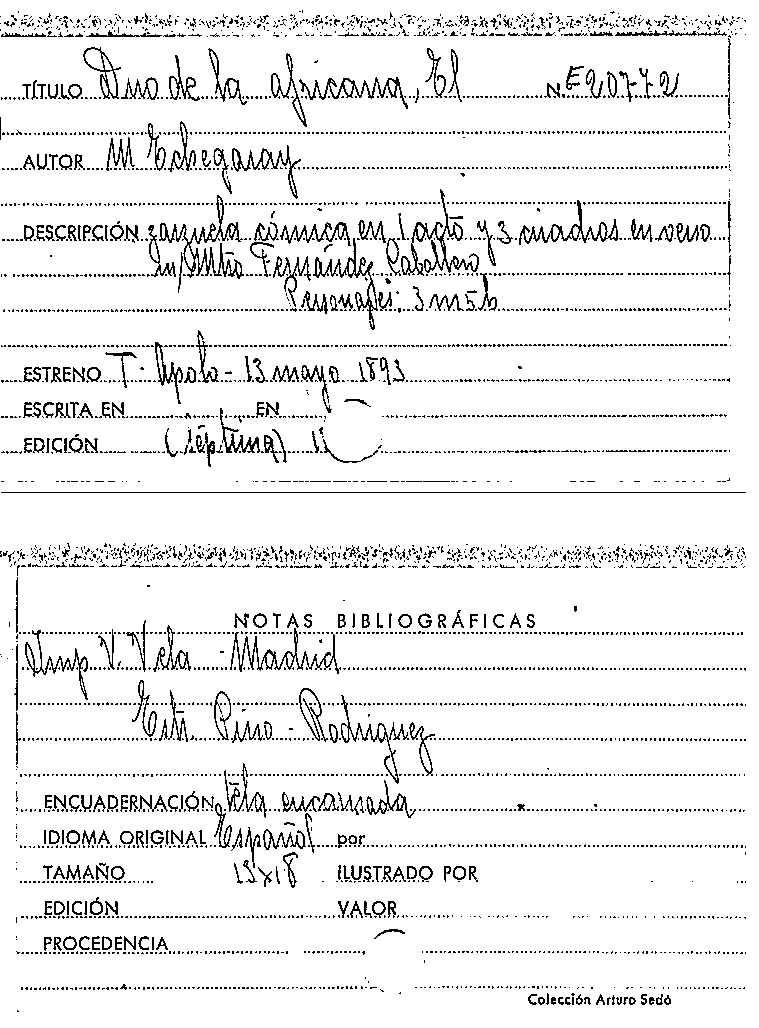 TÍTULO Duo de la africana, El N. E20772
AUTOR M Echegaray
DESCRIPCIÓN zarzuela cómica en 1 acto y 3 cuadros en verso
Mtro Fernández Caballero
Personajes: 3 m 5 h
ESTRENO T. Apolo - 13 mayo 1893
ESCRITA EN EN
EDICIÓN (séptima)
NOTAS BIBLIOGRÁFICAS
Imp V. Vela - Madrid
Estr. Pino - Rodriguez
ENCUADERNACIÓN tela encarnada
IDIOMA ORIGINAL Español por
TAMAÑO 13x18 ILUSTRADO POR
EDICIÓN VALOR
PROCEDENCIA
Colección Arturo Sedó